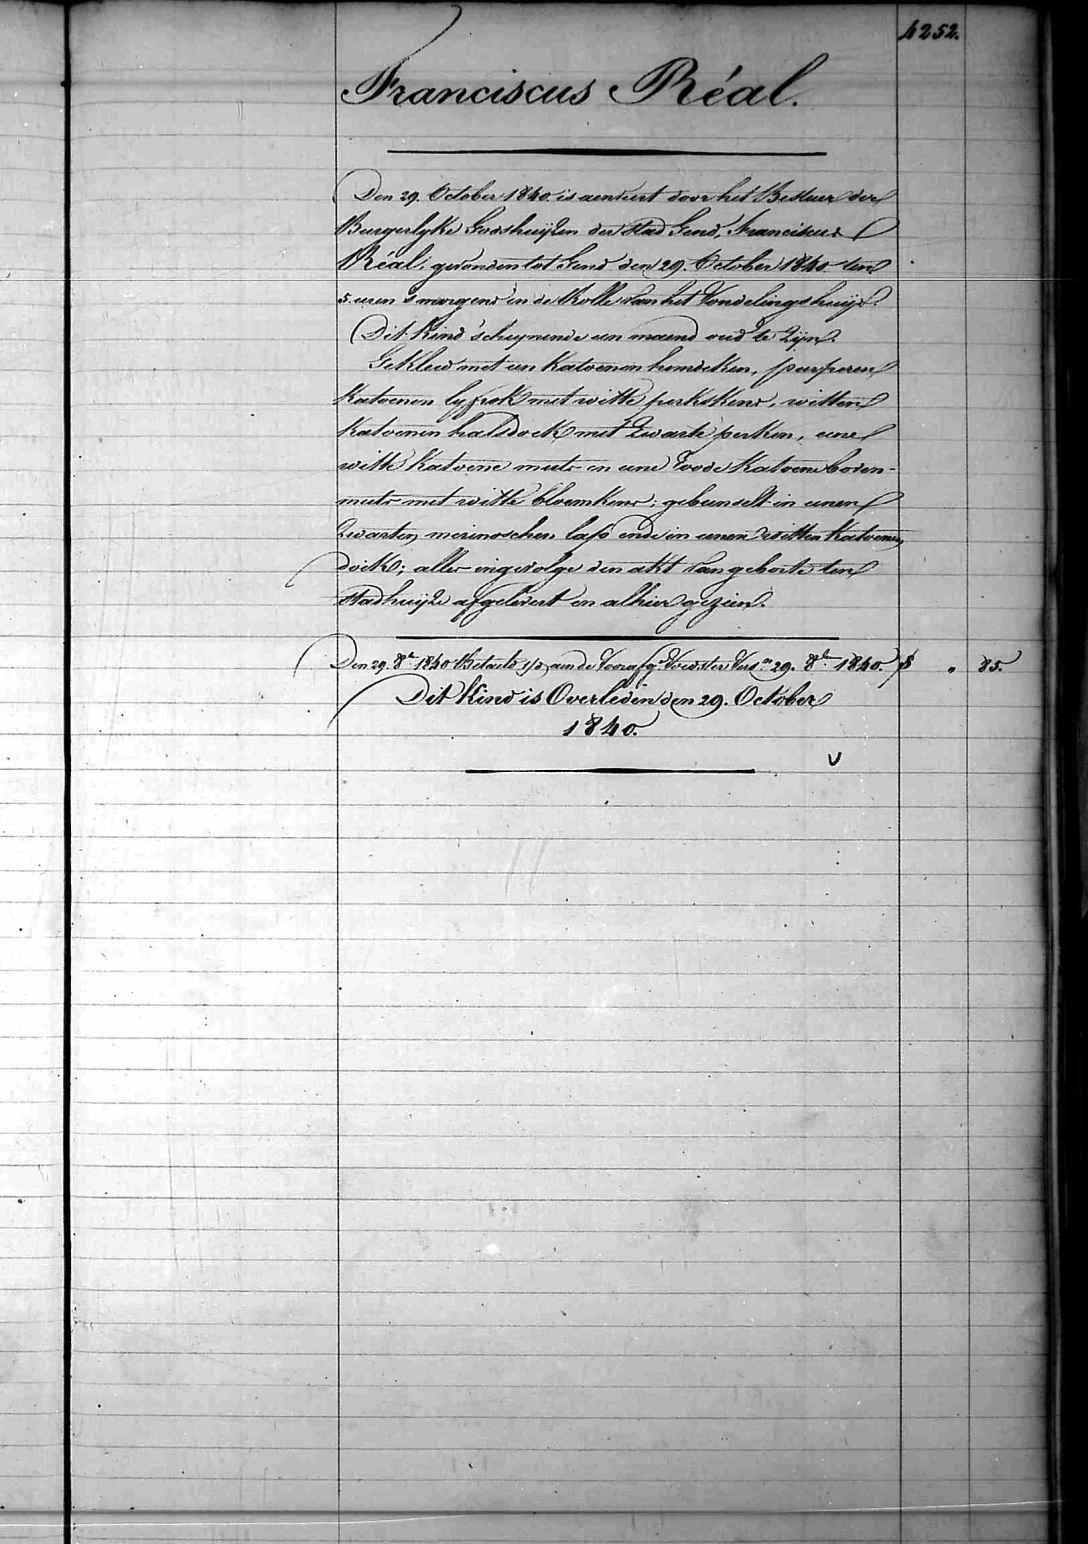 4252.
Franciscus Réal.
Den 29. October 1840. is aenveert door het Bestuer der
Burgerlyke Godshuijzen der stad Gend, Franciscus
Réal, gevonden tot Gend den 29. October 1840. ten
5. uren 's morgens in de Rolle van het Vondelingshuijs.
Dit Kind schynende een maend oud te Zijn.
Gekleed met een Katoenen hemdeken, purperen
Katoenen lyfrok met witte perkskens, witten
Katoenen halsdoek met Zwarte perken, eene
witte Katoene muts en eene roode Katoene boven-
muts met witte bloemkens; gebunselt in eenen
Zwarten merinoschen lap ende in eenen witten Katoenen
doek; alles ingevolge den akt van geboorte ten
stadhuijze afgelevert en alhier gezien.
Den 29. 8er 1840 Betaelt aen de Voedster 29. 8er 1840. 85.
Dit Kind is Overleden den 29. October
1840.
V